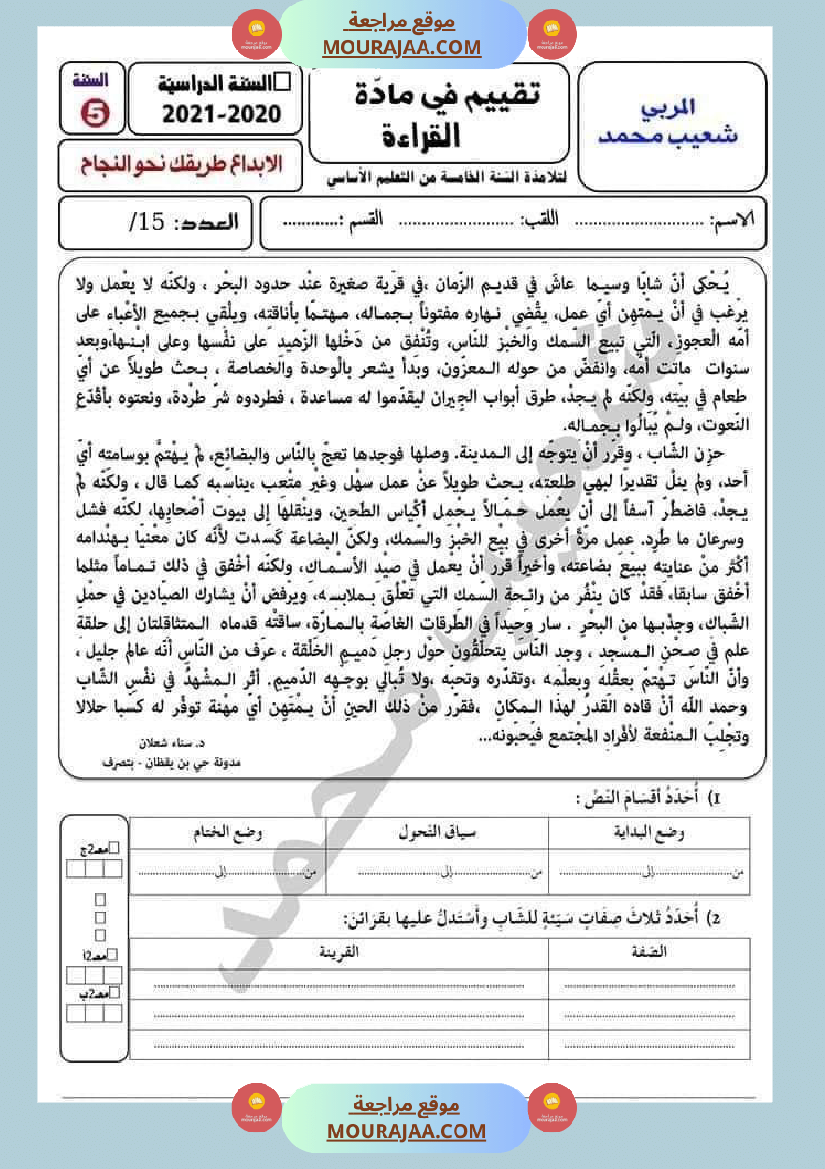 موقع مراجعة
MOURAJAA.COM
المربي
شعيب محمد
تقييم في مادّة
القراءة
لتلامذة السّنة الخامسة من التّعليم الأساسي
السنة الدراسيّة
2021-2020
السنة
5
الابداع طريقك نحو النجاح
الاسم: ............................ اللقب: ......................... القسم :............
العدد: 15/
يُـحْكى أنّ شابّا وسيـما عاشَ في قديـم الزّمان ،في قرْية صغيرة عنْد حدود البحْر ، ولكنّه لا يعْمل ولا
يرْغب في أنْ يـمْتهن أيّ عمل، يقْضي نـهاره مفتوناً بـجماله، مـهتمّا بأناقته، ويلْقي بـجميع الأعْباء على
أمّه الْعجوز، الّتي تبيع السّمك والخبْز للنّاس، وتُنْفق من دَخْلها الزّهيد على نفْسها وعلى ابـنـها،وبعد
سنوات ماتت أمّه، وانفضّ من حوله الـمعزّون، وبدأ يشعر بالْوحدة والخصاصة ، بـحث طويلاً عن أيّ
طعام في بيْته، ولكنّه لم يـجدْ، طرق أبواب الجيران ليقدّموا له مساعدة ، فطردوه شرّ طرْدة، ونعتوه بأقْدَع
النّعوت، ولـمْ يُبَالُوا بـجماله.
حزِن الشّاب ، وقرّر أنْ يتوجّه إلى الـمدينة. وصلها فوجدها تعجّ بالنّاس والبضائع، لمْ يـهْتمّ بوسامته أيّ
أحد، ولم ينلْ تقديرًا لبهيّ طلْعته، بـحث طويلاً عنْ عمل سهْل وغيْر متْعب ،يناسبه كمـا قال ، ولكنّه لمْ
يـجدْ، فاضطرّ آسفاً إلى أن يعْمل حـمّـالاً يـحْمل أكْياس الطّحين، وينْقلها إلى بيوت أصْحابها، لكنّه فشل
وسرعان ما طُرد. عمل مرّةً أخرى في بيْع الخبْز والسّمك، ولكنّ البضاعة كَسدت لأنّه كان معْنيّا بـهندامه
أكْثر منْ عنايته ببيْع بضاعته، وأخيراً قرّر أنْ يعمل في صيْد الأسْمـاك، ولكنّه أخْفق في ذلك تـمـاماً مثلما
أخْفق سابقا، فقدْ كان ينْفُر من رائـحة السمك التي تعْلَق بـملابسـه، ويرْفض أنْ يشارك الصيّادين في حمْل
الشّباك، وجذْبـها من البحْر . سار وحيداً في الطّرقات الغاصّة بالـمـارّة، ساقتْه قدماه المتثاقلتان إلى حلقة
علم في صحْن الـمسْجد ، وجد النّاسَ يتحلّقون حوْل رجل دَميـم الخَلْقة ، عرَف من النّاس أنّه عالم جليل ،
وأنّ النّاسَ تـهْتمّ بعقْله وبعلْمه ،وتقدّره وتحبّه ،ولا تُبالي بوجـهه الدّميم. أثّر الـمشْهدُ في نفْس الشّاب
وحمد اللّه أنْ قاده القدرُ لهذا الـمكان ،فقرّر منْ ذلك الحين أنْ يـمْتهن أيّ مهْنة توفّر له كسبا حلالا
وتجْلبُ الـمنْفعة لأفْراد المجْتمع فيُحبّونه...
د. سناء شعلان
مدونة حي بن يقظان - بتصرف
1) أُحَدِّدُ أَقْسَامَ النَّصْ :
وضع البداية سياق التّحول وضع الختام
من........................إلى........................ من........................إلى........................ من........................إلى........................
2) أُحَدِّدُ ثَلاثَ صِفَاتٍ سَيّئةٍ للشّابِ وأَسْتَدلُّ عليها بقرَائنَ:
الصّفة القرينة
معـ2ج
معـ2أ
معـ2ب
شعيب محمد
موقع مراجعة
MOURAJAA.COM